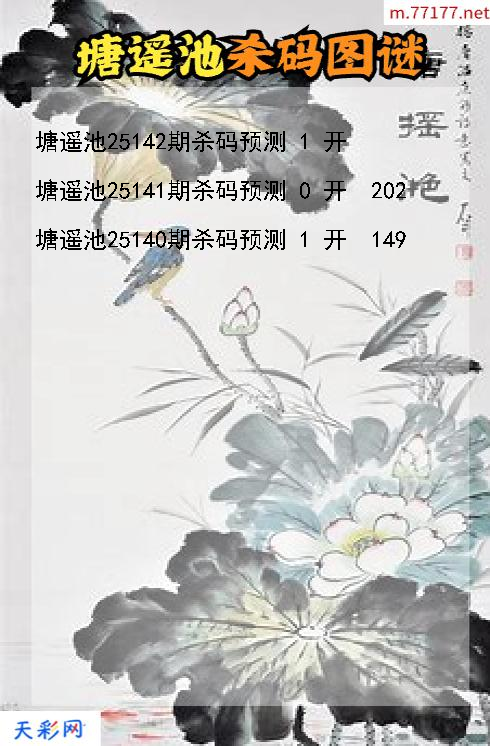 m.77177.net
塘遥池杀码图谜
塘遥池25142期杀码预测 1 开
塘遥池25141期杀码预测 0 开 202
塘遥池25140期杀码预测 1 开 149
天彩网